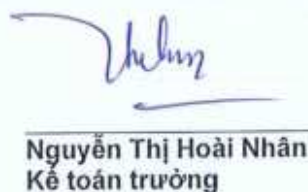 Nguyễn Thị Hoài Nhân
Kế toán trưởng